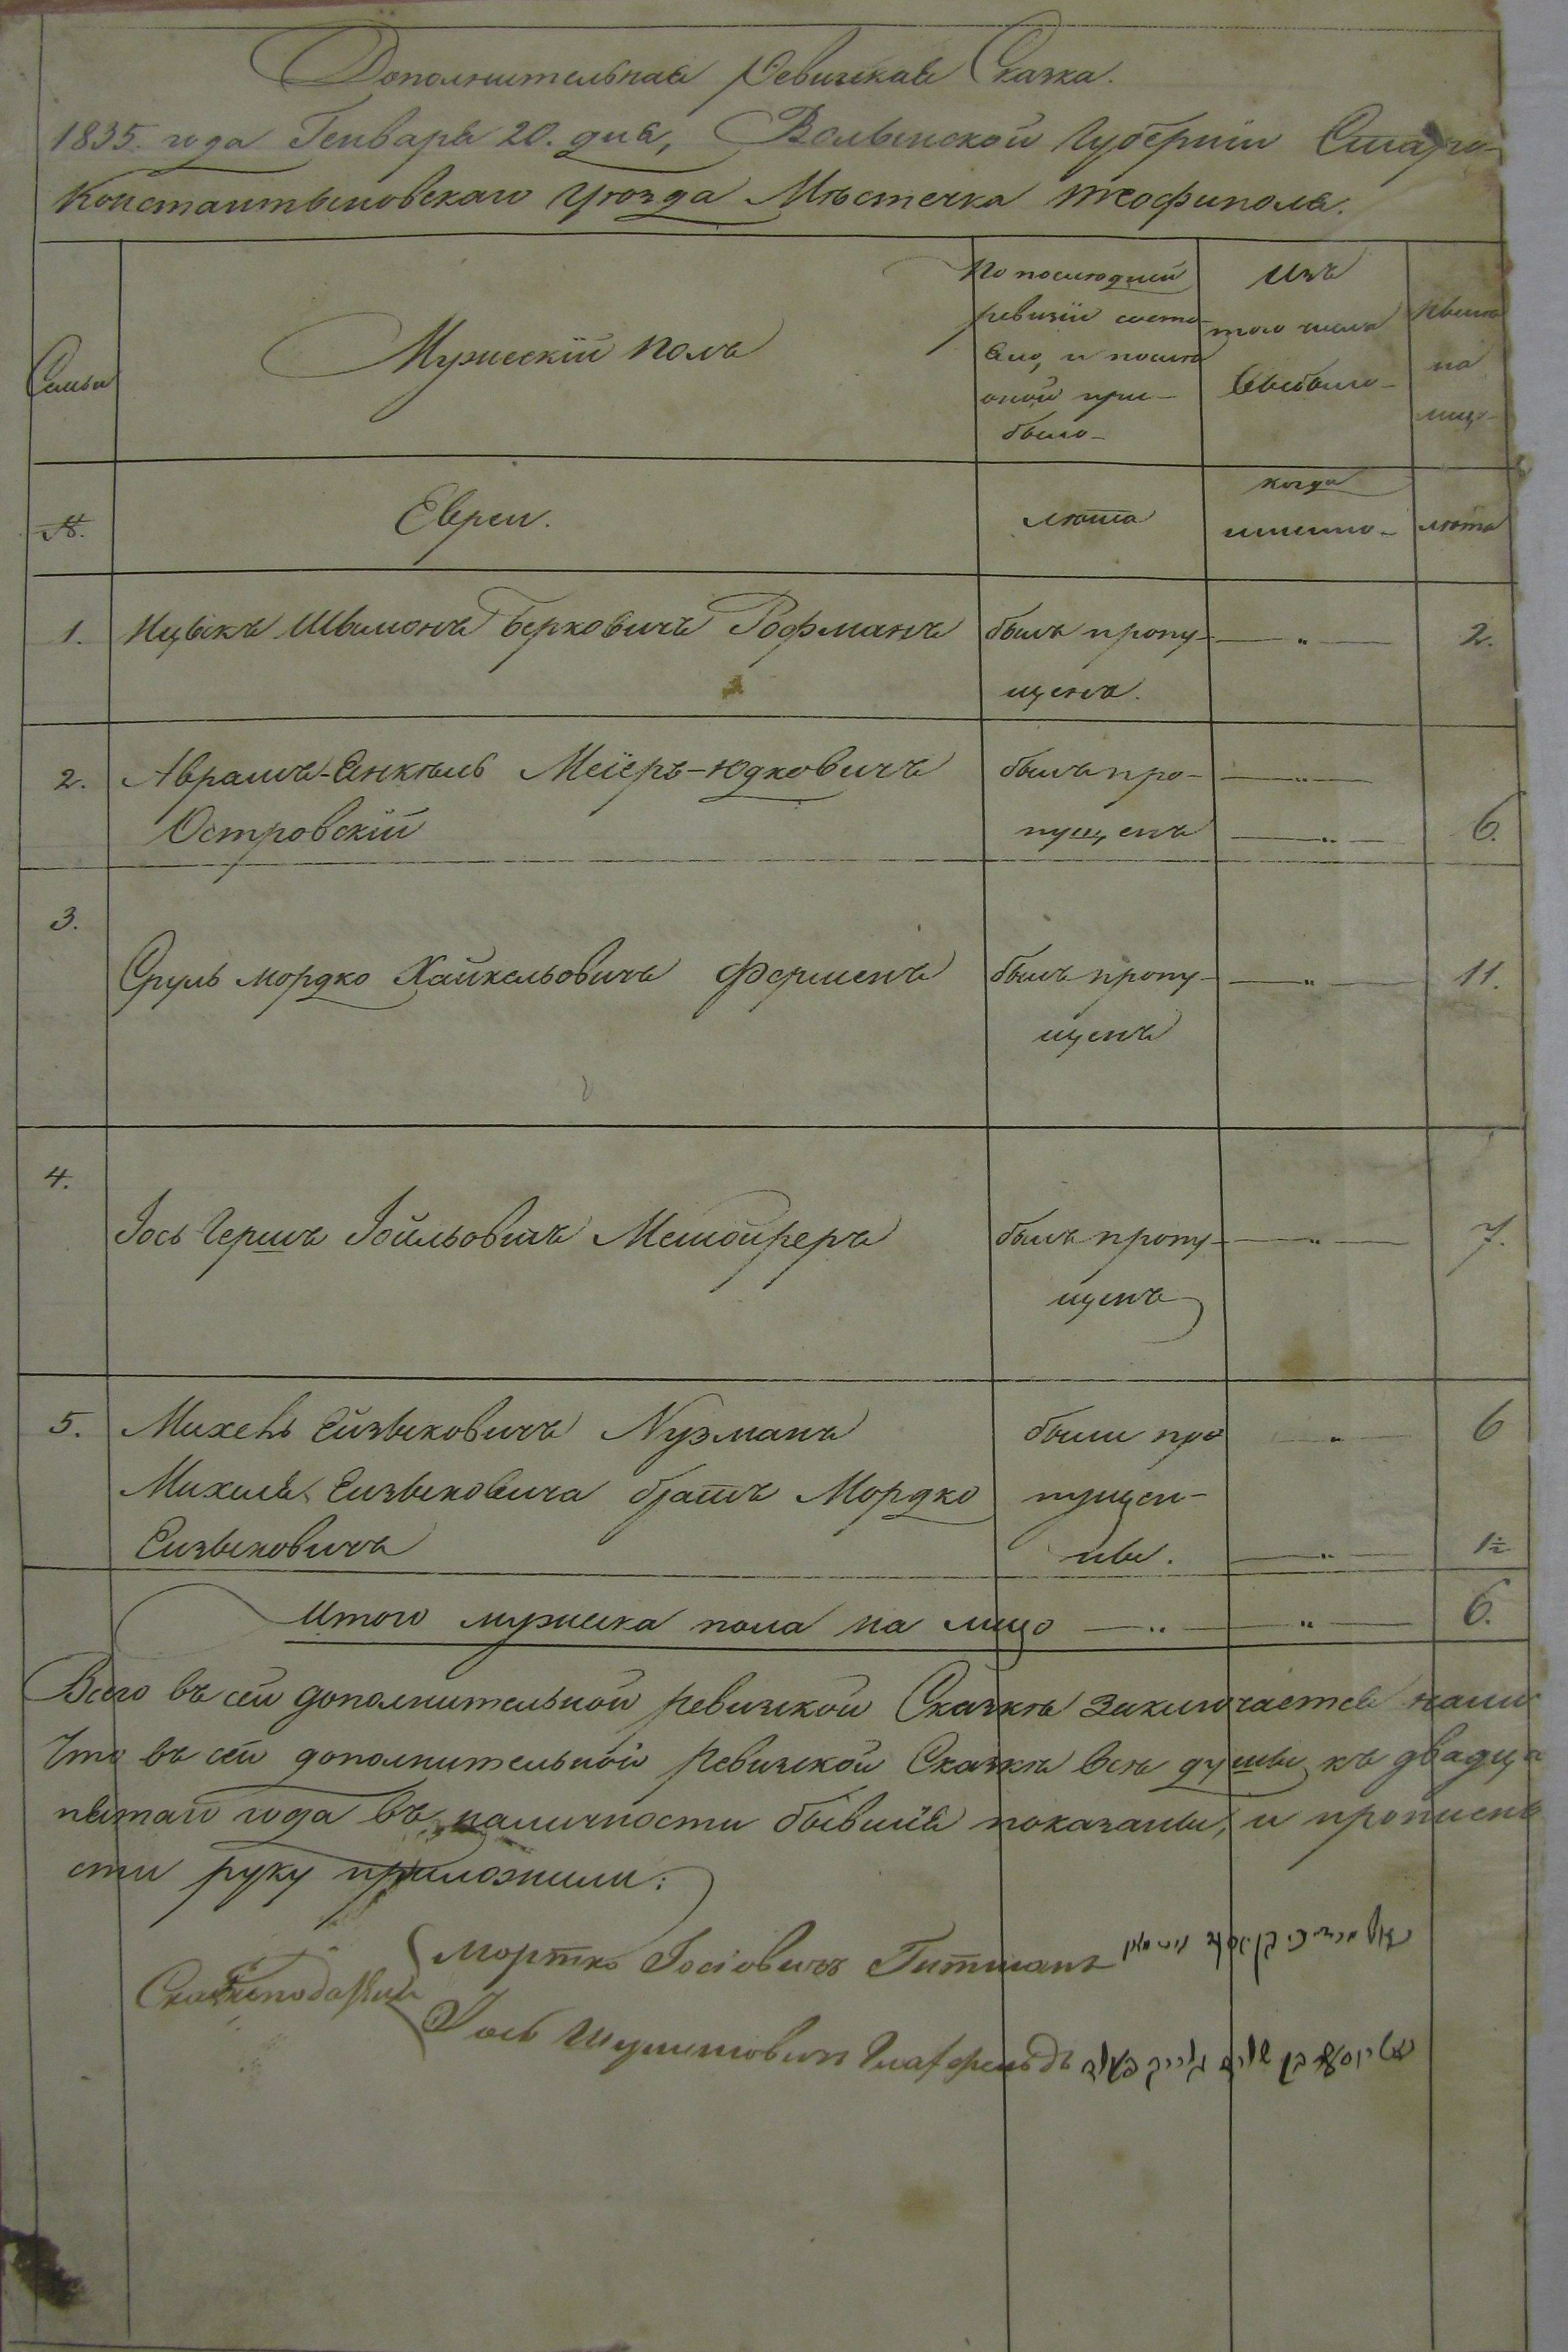 Дополнительная Ревизская Сказка.
1835. года Генваря 20. дня, Волынской Губерніи Старо-
Константыновскаго Уѣзда Мѣстечка Теофиполя.
Семьи
Мужескій полъ
По послѣдней
ревизіи состо-
яло, и послѣ
оной при-
было-
Изъ
того числа
выбыло-
Нынѣ
на
лицо
№.
Евреи.
лѣта
когда
именно-
лѣта
1. Ицыкъ Шымонъ Берковичъ Рофманъ былъ пропу- — " — 2.
щенъ.
2. Аврамъ-Янкѣль Меіеръ-Юдковичъ былъ про- — " —
Островскій пущенъ — " — 6.
3.
Сруль Мордко Хайкельовичъ Ферменъ былъ пропу- — " — 11.
щенъ
4.
Іось Гершъ Іойльовичъ Мешойреръ былъ пропу- — " — 7.
щенъ
5. Михель Ейзыковичъ Нузманъ были про — " — 6
Михеля Ейзыковича братъ Мордко пущен-
Ейзыковичъ ны. — " — 1½
Итого мужеска пола на лицо — " — " — 6.
Всего въ сей дополнительной ревизской Сказкѣ заключается
Что въ сей дополнительной Ревизской Сказкѣ всѣ душы къ двадца
пятаго года въ наличности бывшія показаны, и
сти руку приложили:
Сказкоподатели
Мортко Іосіовичъ Гитманъ מרדכי בן יוסף גיטמאן
Іось יוסף בן